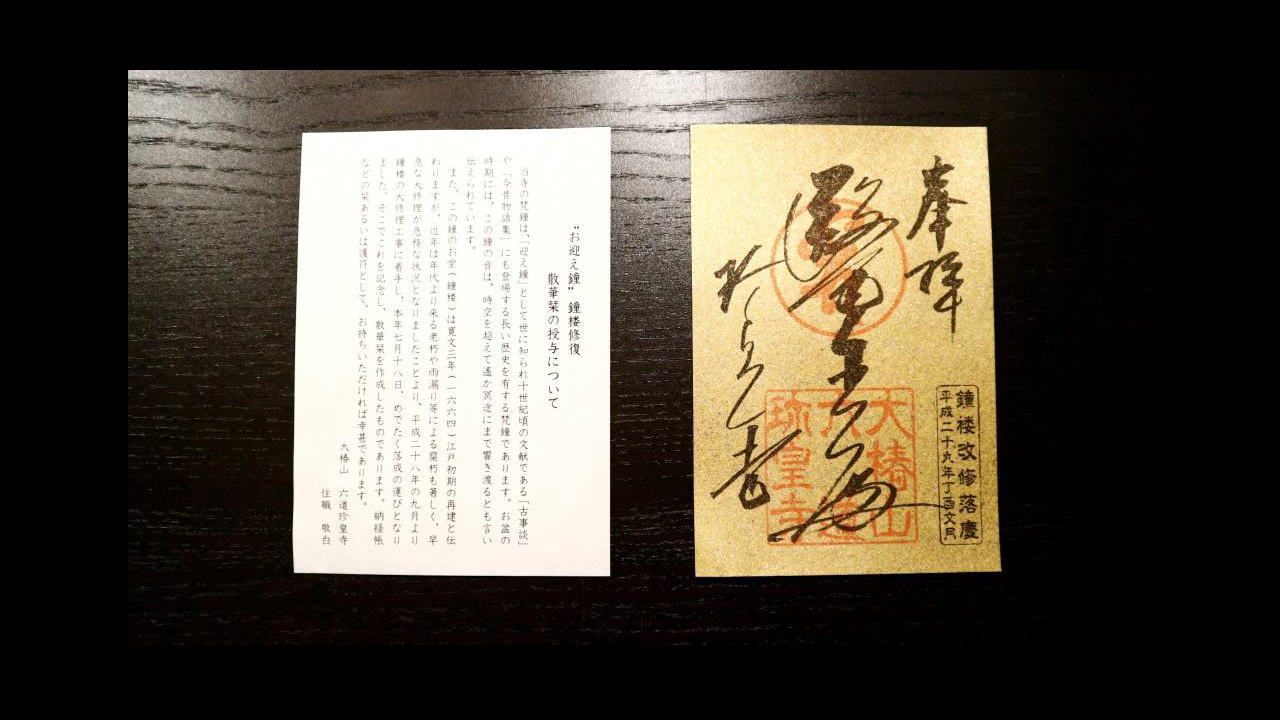 "お迎え鐘"鐘楼修復
散華栞の授与について
当寺の梵鐘は、「迎え鐘」として世に知られ十世紀頃の文献である「古事談」
や「今昔物語集」にも登場する長い歴史を有する梵鐘であります。お盆の
時期には、この鐘の音は、時空を超えて遙か冥途にまで響き渡るとも言い
伝えられています。
また、この鐘のお堂(鐘楼)は寛文三年(一六六四)江戸初期の再建と伝
わりますが、近年は年代より来る老朽や雨漏り等による腐朽も著しく、早
急な大修理が急務な状況となりましたことより、平成二十八年の九月より
鐘楼の大修理工事に着手し、本年七月十八日、めでたく落成の運びとなり
ました。そこでこれを記念し、散華栞を作成したものであります。納経帳
などの栞あるいは護符として、お持ちいただければ幸甚であります。
大椿山 六道珍皇寺
住職 敬白
奉拝
珍皇寺
大椿山
六道
珍皇寺
鐘楼改修落慶
平成二十九年丁酉文月